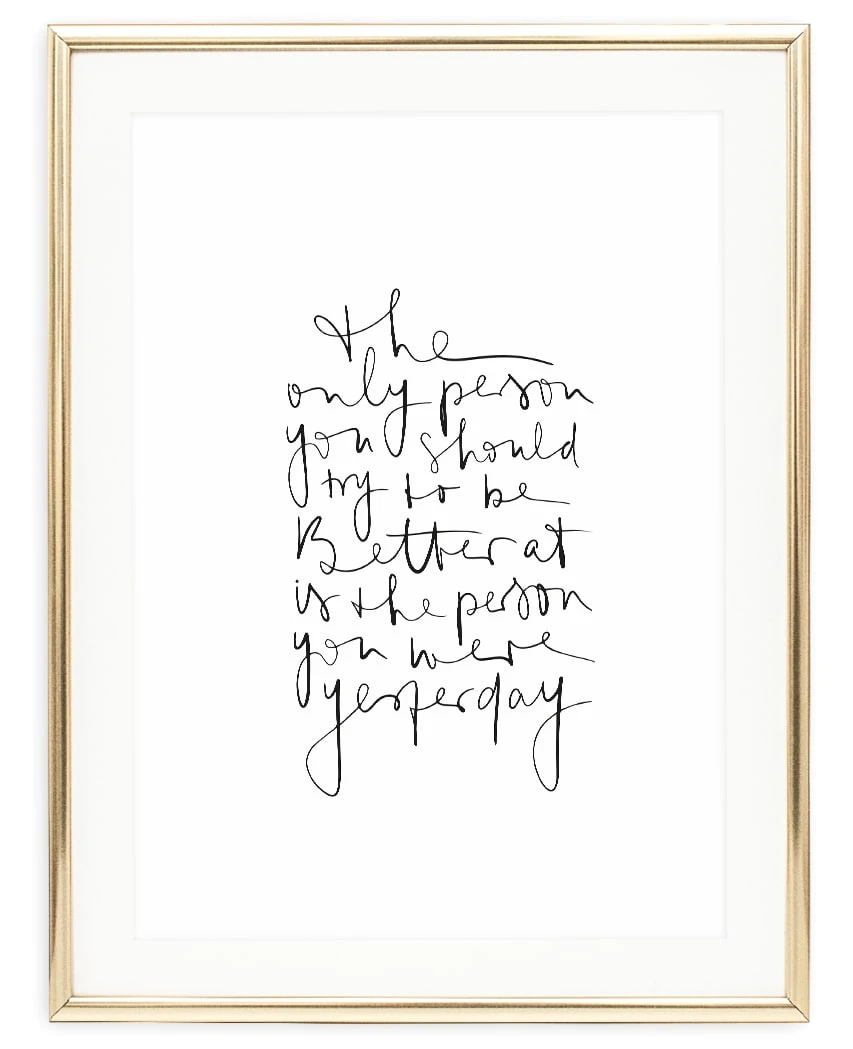 the
only person
you should
try to be
Better at
is the person
you were
yesterday